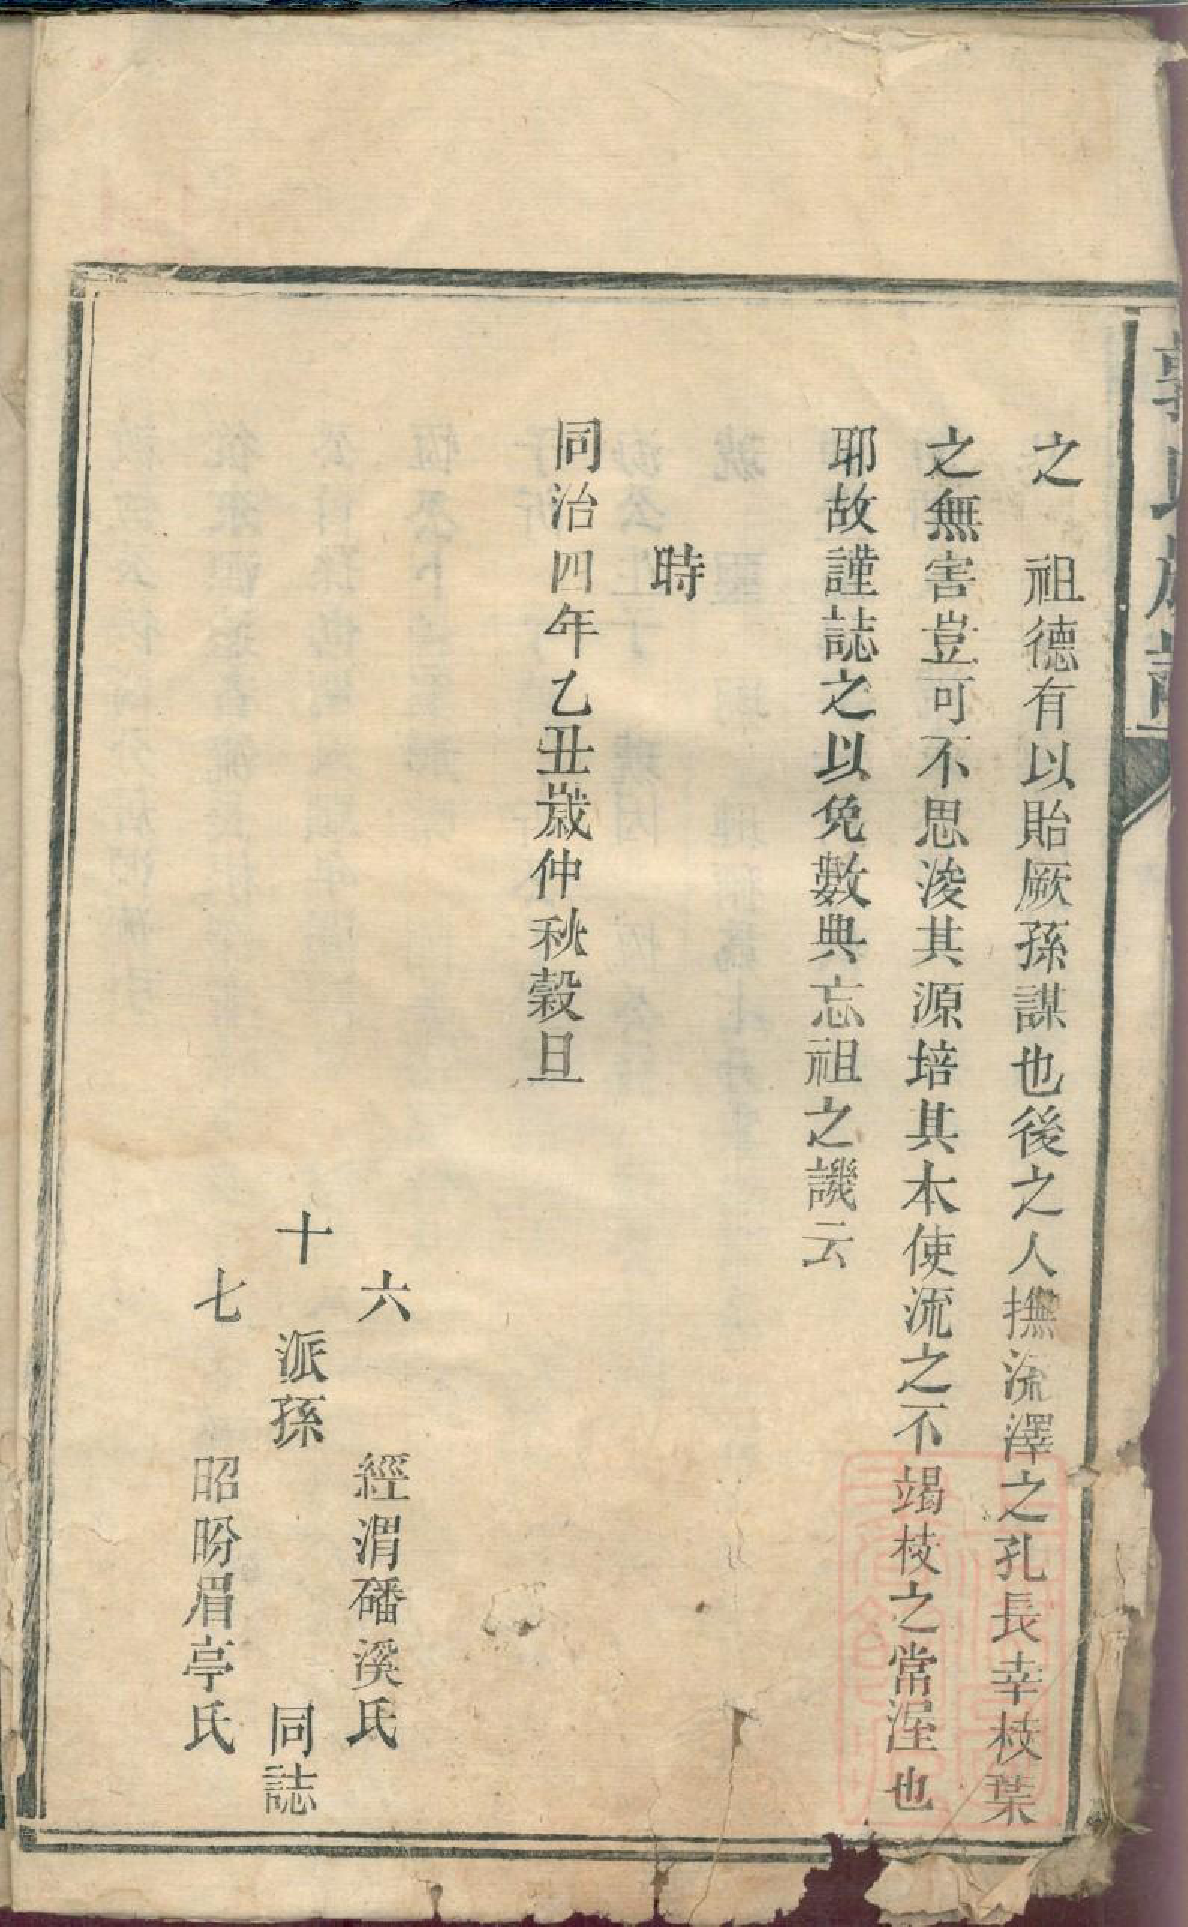 之　祖德有以貽厥孫謀也後之人撫流澤之孔長幸枝葉
之無害豈可不思浚其源培其本使流之不竭枝之常渥也
耶故謹誌之以免數典忘祖之譏云
時
同治四年乙丑歲仲秋穀旦
六　經渭磻溪氏
十　派孫　同誌
七　昭昐眉亭氏